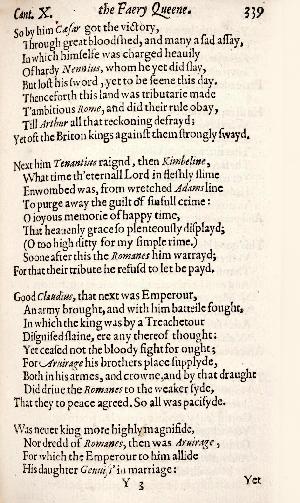 Cant. X. the Faery Queene. 339
So by him Cæsar got the victory,
Through great bloodshed, and many a sad assay,
In which himselfe was charged heauily
Of hardy Nennius, whom he yet did slay,
But lost his sword, yet to be seene this day.
Thenceforth this land was tributarie made
T'ambitious Rome, and did their rule obay,
Till Arthur all that reckoning defrayd;
Yet oft the Briton kings against them strongly swayd.
Next him Tenantius raignd, then Kimbeline,
What time th'eternall Lord in fleshly slime
Enwombed was, from wretched Adams line
To purge away the guilt of sinfull crime:
O ioyous memorie of happy time,
That heauenly grace so plenteously displayd;
(O too high ditty for my simple rime.)
Soone after this the Romanes him warrayd;
For that their tribute he refusd to let be payd.
Good Claudius, that next was Emperour,
An army brought, and with him batteile fought,
In which the king was by a Treachetour
Disguised slaine, ere any thereof thought:
Yet ceased not the bloody fight for ought;
For Aruirage his brothers place supplyde,
Both in his armes, and crowne, and by that draught
Did driue the Romanes to the weaker syde,
That they to peace agreed. So all was pacifyde.
Was neuer king more highly magnifide,
Nor dredd of Romanes, then was Aruirage,
For which the Emperour to him allide
His daughter Genuiss' in marriage:
Y 3 Yet